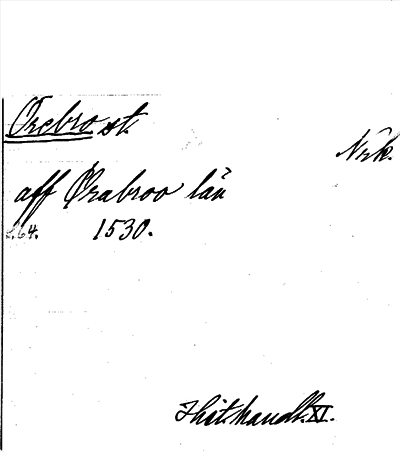 Örebro st.
Närk.
aff Ørabroo län
s. 64. 1530.
Hist. handl. XI.